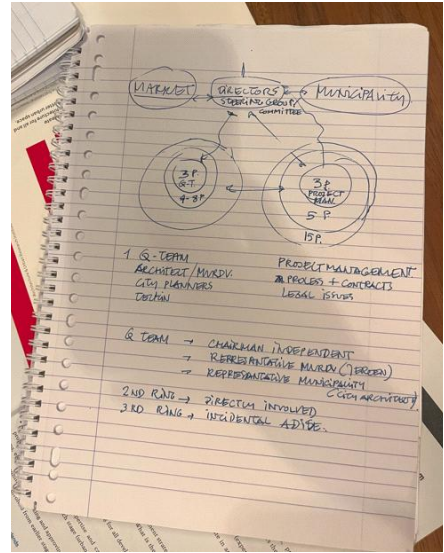 MARKET
DIRECTORS
STEERING GROUP/
COMMITTEE
MUNICIPALITY
3P.
Q-T
4-8P.
3P
PROJECT
MAN
5 P.
15 P.
1 Q-TEAM
ARCHITECT/MVRDV.
CITY PLANNERS
PROJECT MANAGEMENT
PROCESS + CONTRACTS
LEGAL ISSUES
Q TEAM → CHAIRMAN INDEPENDENT
→ REPRESENTATIVE MVRDV (JEROEN)
→ REPRESENTATIVE MUNICIPALITY
(CITY ARCHITECT)
2ND RING → DIRECTLY INVOLVED
3RD RING → INCIDENTAL